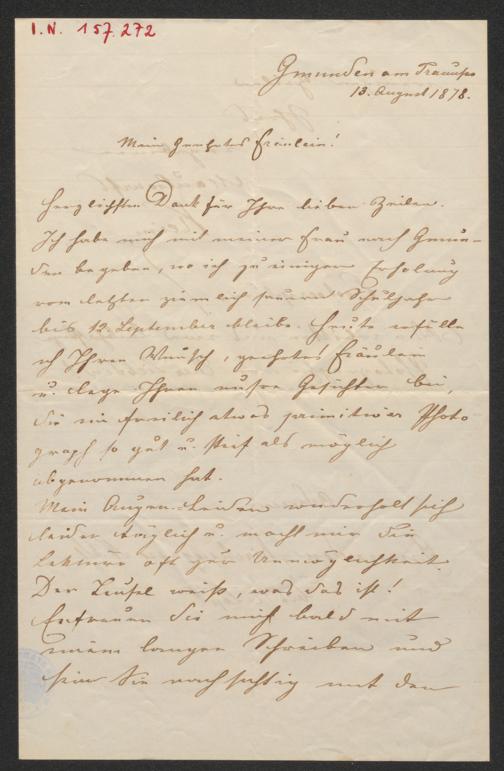 I.N. 157.272
Gmunden am Traunsee
13. August 1878.
Mein geehrtes Fräulein!
Herzlichsten Dank für Ihre lieben Zeilen.
Ich habe mich mit meiner Frau nach Gmun-
den begeben, wo ich zu einigen Erholung
vom letzten ziemlich sauren Schuljahr
bis 12. September bleibe. Heute erfülle
ich Ihren Wunsch, geehrtes Fräulein
u. lege Ihnen unsere Gesichter bei,
die ein freilich etwas primitiver Photo
graph so gut u. steif als möglich
abgenommen hat.
Mein Augen-Leiden wiederholt sich
leider täglich u. macht mir die
Lektüre oft zur Unmöglichkeit.
Der Teufel weiß, was das ist!
Erfreuen Sie mich bald mit
einem langen Schreiben und
sein Sie nachsichtig mit dem